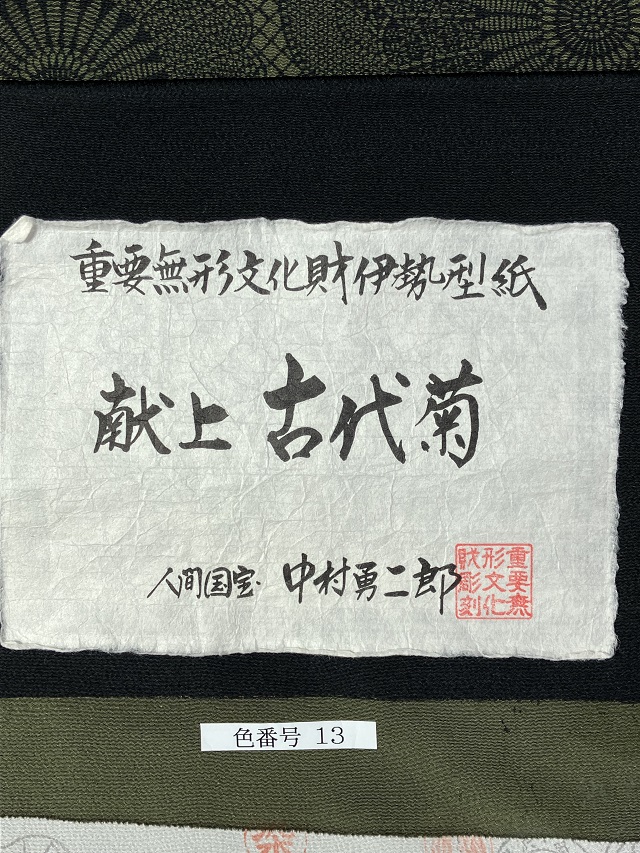 重要無形文化財伊勢型紙
献上 古代菊
人間国宝 中村勇二郎
重要無
形文化
財彫刻
色番号 13